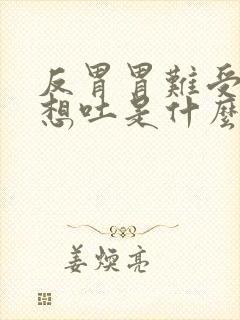 反胃胃難受
想吐是什麼
姜煥亮